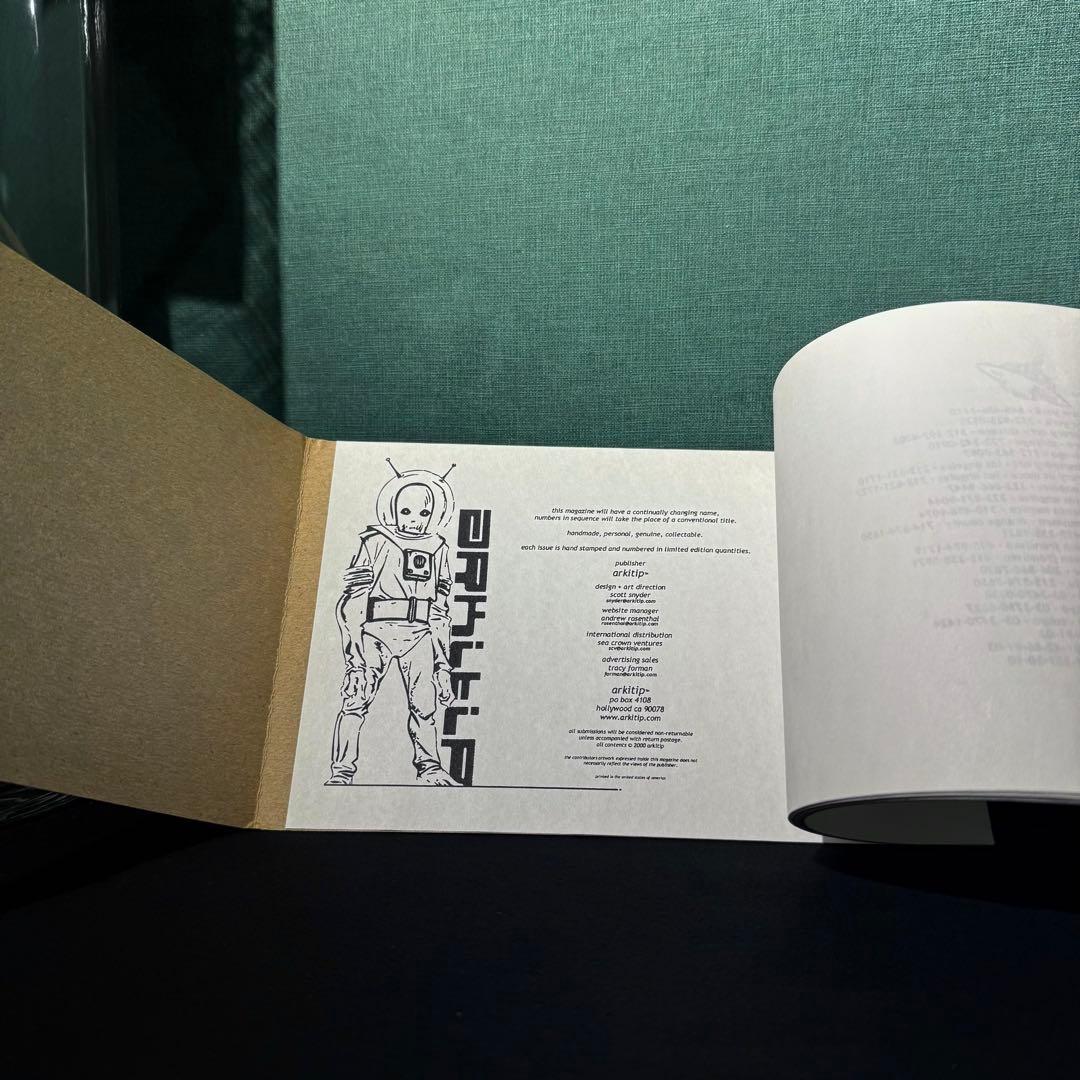 arkitip
this magazine will have a continually changing name,
numbers in sequence will take the place of a conventional title.
handmade, personal, genuine, collectable.
each issue is hand stamped and numbered in limited edition quantities.
publisher
arkitip™
design + art direction
scott snyder
snyder@arkitip.com
website manager
andrew rosenthal
rosenthal@arkitip.com
international distribution
sea crown ventures
scv@arkitip.com
advertising sales
tracy forman
forman@arkitip.com
arkitip™
po box 4108
hollywood ca 90078
www.arkitip.com
all submissions will be considered non-returnable
unless accompanied with return postage.
all contents © 2000 arkitip
the contributors artwork expressed inside this magazine does not
necessarily reflect the views of the publisher.
printed in the united states of america